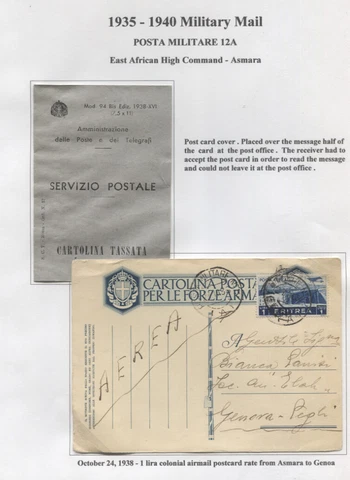 1935 - 1940 Military Mail
POSTA MILITARE 12A
East African High Command - Asmara
Mod. 94 Bis Ediz. 1938 XVI
Amministrazione
delle Poste e dei Telegrafi
SERVIZIO POSTALE
CARTOLINA TASSATA
Post card cover . Placed over the message half of
the card at the post office . The receiver had to
accept the post card in order to read the message
and could not leave it at the post office .
CARTOLINA POSTA
PER LE FORZE ARMA
1 ERITREA
AEREA
Bianca
Genova - Pegli
October 24, 1938 - 1 lira colonial airmail postcard rate from Asmara to Genoa